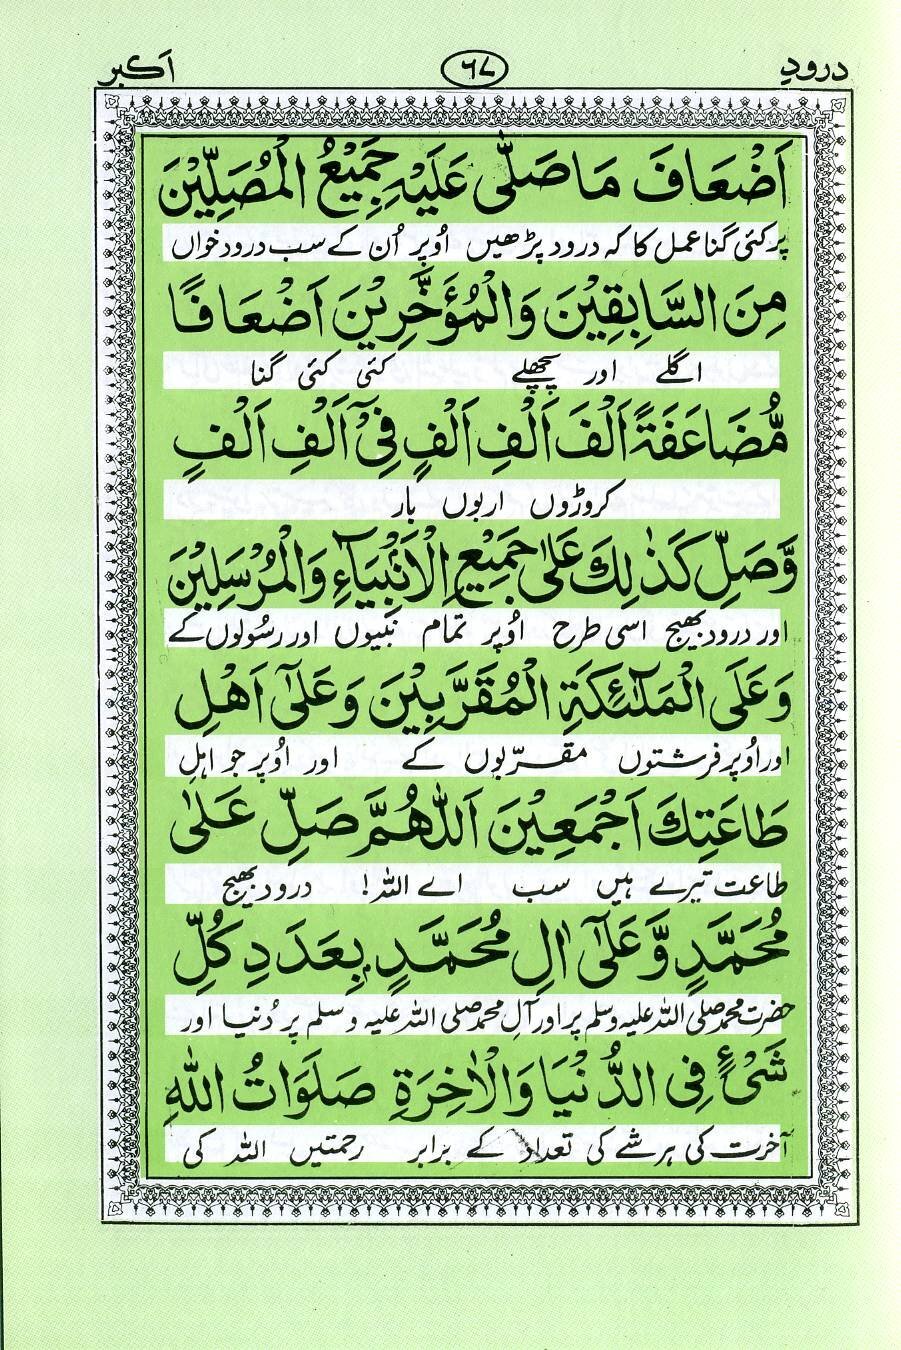 درودِ ۶۷ اَکبر
اَضْعَافَ مَا صَلّٰی عَلَیْهِ جَمِیْعُ الْمُصَلِّیْنَ
پر کئی گنا عمل کا کہ درود پڑھیں اُوپر اُن کے سب درود خواں
مِنَ السَّابِقِیْنَ وَالْمُؤَخَّرِیْنَ اَضْعَافًا
اگلے اور پچھلے کئی کئی گنا
مُّضَاعَفَةً اَلْفَ اَلْفِ اَلْفٍ فِیْٓ اَلْفِ اَلْفٍ
کروڑوں اربوں بار
وَّصَلِّ کَذٰلِكَ عَلٰی جَمِیْعِ الْاَنْبِیَآءِ وَالْمُرْسَلِیْنَ
اور درود بھیج اسی طرح اُوپر تمام نبیوں اور رسُولوں کے
وَعَلَی الْمَلٰٓئِکَةِ الْمُقَرَّبِیْنَ وَعَلٰٓی اَهْلِ
اور اُوپر فرشتوں مقرّبوں کے اور اُوپر جو اہلِ
طَاعَتِكَ اَجْمَعِیْنَ اَللّٰهُمَّ صَلِّ عَلٰی
طاعت تیرے ہیں سب اے اللہ! درود بھیج
مُحَمَّدٍ وَّعَلٰٓی اٰلِ مُحَمَّدٍ بِعَدَدِ کُلِّ
حضرت محمد صلی اللہ علیہ وسلم پر اور آلِ محمد صلی اللہ علیہ وسلم پر دُنیا اور
شَیْءٍ فِی الدُّنْیَا وَالْاٰخِرَةِ صَلَوَاتُ اللّٰهِ
آخرت کی ہر شے کی تعداد کے برابر رحمتیں اللہ کی